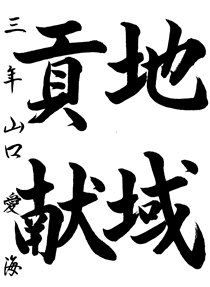 地域
貢献
三年 山口 愛海